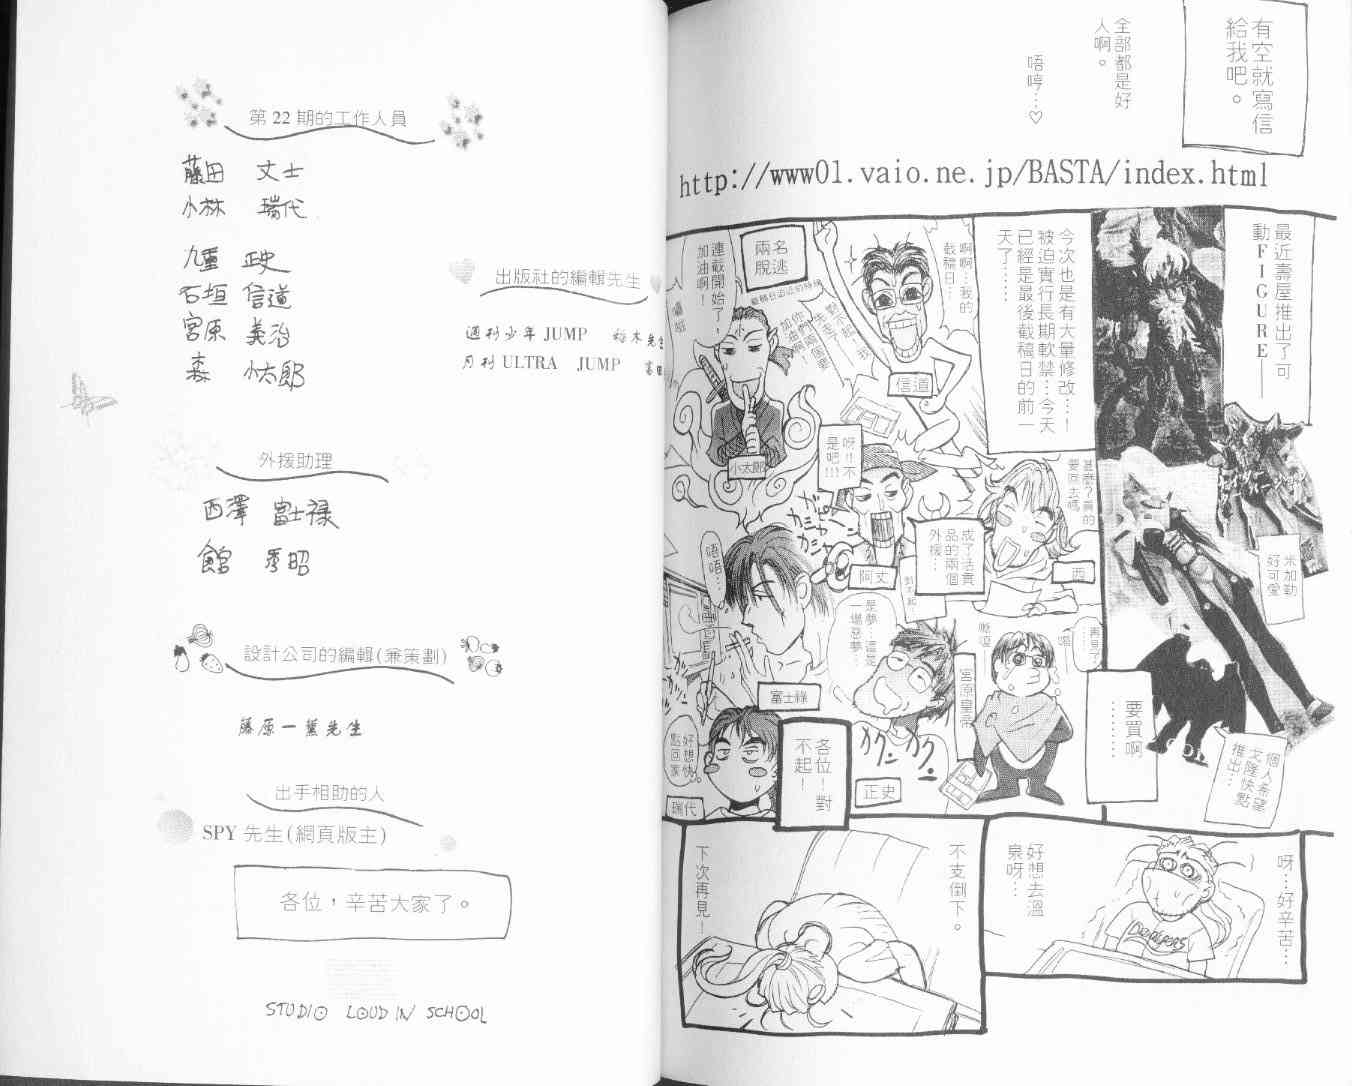 有空就寫信
給我吧。
全部都是好
人啊。
唔哼…♡
http://www01.vaio.ne.jp/BASTA/index.html
最近壽屋推出了可
動FIGURE——
米加勒
好可愛
個人希望
戈隆快點
推出…
要買啊
………
今次也是有大量修改…！
被迫實行長期軟禁…今天
已經是最後截稿日的前一
天了……
啊啊…我的
截稿日…
信道
兩名
脫逃
連載開始了，
加油啊！
對不起！我
先走了——
你們兩個要
加油啊！
小太郎
呀!!不
是吧!!!
阿丈
甚麼？真的
要回去嗎
西
成了活貴
品的兩個
外援…
對不起
唔唔…
富士祿
是夢…這是
一場惡夢…
カクン カクン
正史
再見了
……
嗚
嗚噎
宮原皇帝
好想快
點回家
瑞代
各位！對
不起！
呀…好辛苦…
好想去溫
泉呀…
DRAGONS
不支倒下。
下次再見！
第22期的工作人員
藤田 丈士
小林 瑞代
九重 正史
石垣 信道
宮原 義治
森 小太郎
出版社的編輯先生
週刊少年JUMP 稻木先生
月刊ULTRA JUMP
外援助理
西澤 富士祿
館 秀昭
設計公司的編輯(兼策劃)
藤原一薰先生
出手相助的人
SPY 先生(網頁版主)
各位，辛苦大家了。
STUDIO LOUD IN SCHOOL